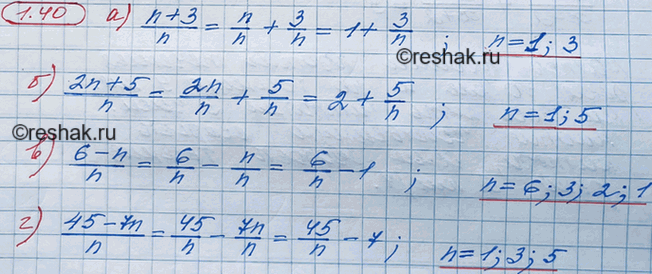 1.40 а) (n+3)/n = n/n + 3/n = 1 + 3/n ; n=1; 3
б) (2n+5)/n = 2n/n + 5/n = 2 + 5/n ; n=1; 5
©reshak.ru
©reshak.ru
в) (6-n)/n = 6/n - n/n = 6/n - 1 ; n=6; 3; 2; 1
г) (45-7n)/n = 45/n - 7n/n = 45/n - 7 ; n=1; 3; 5